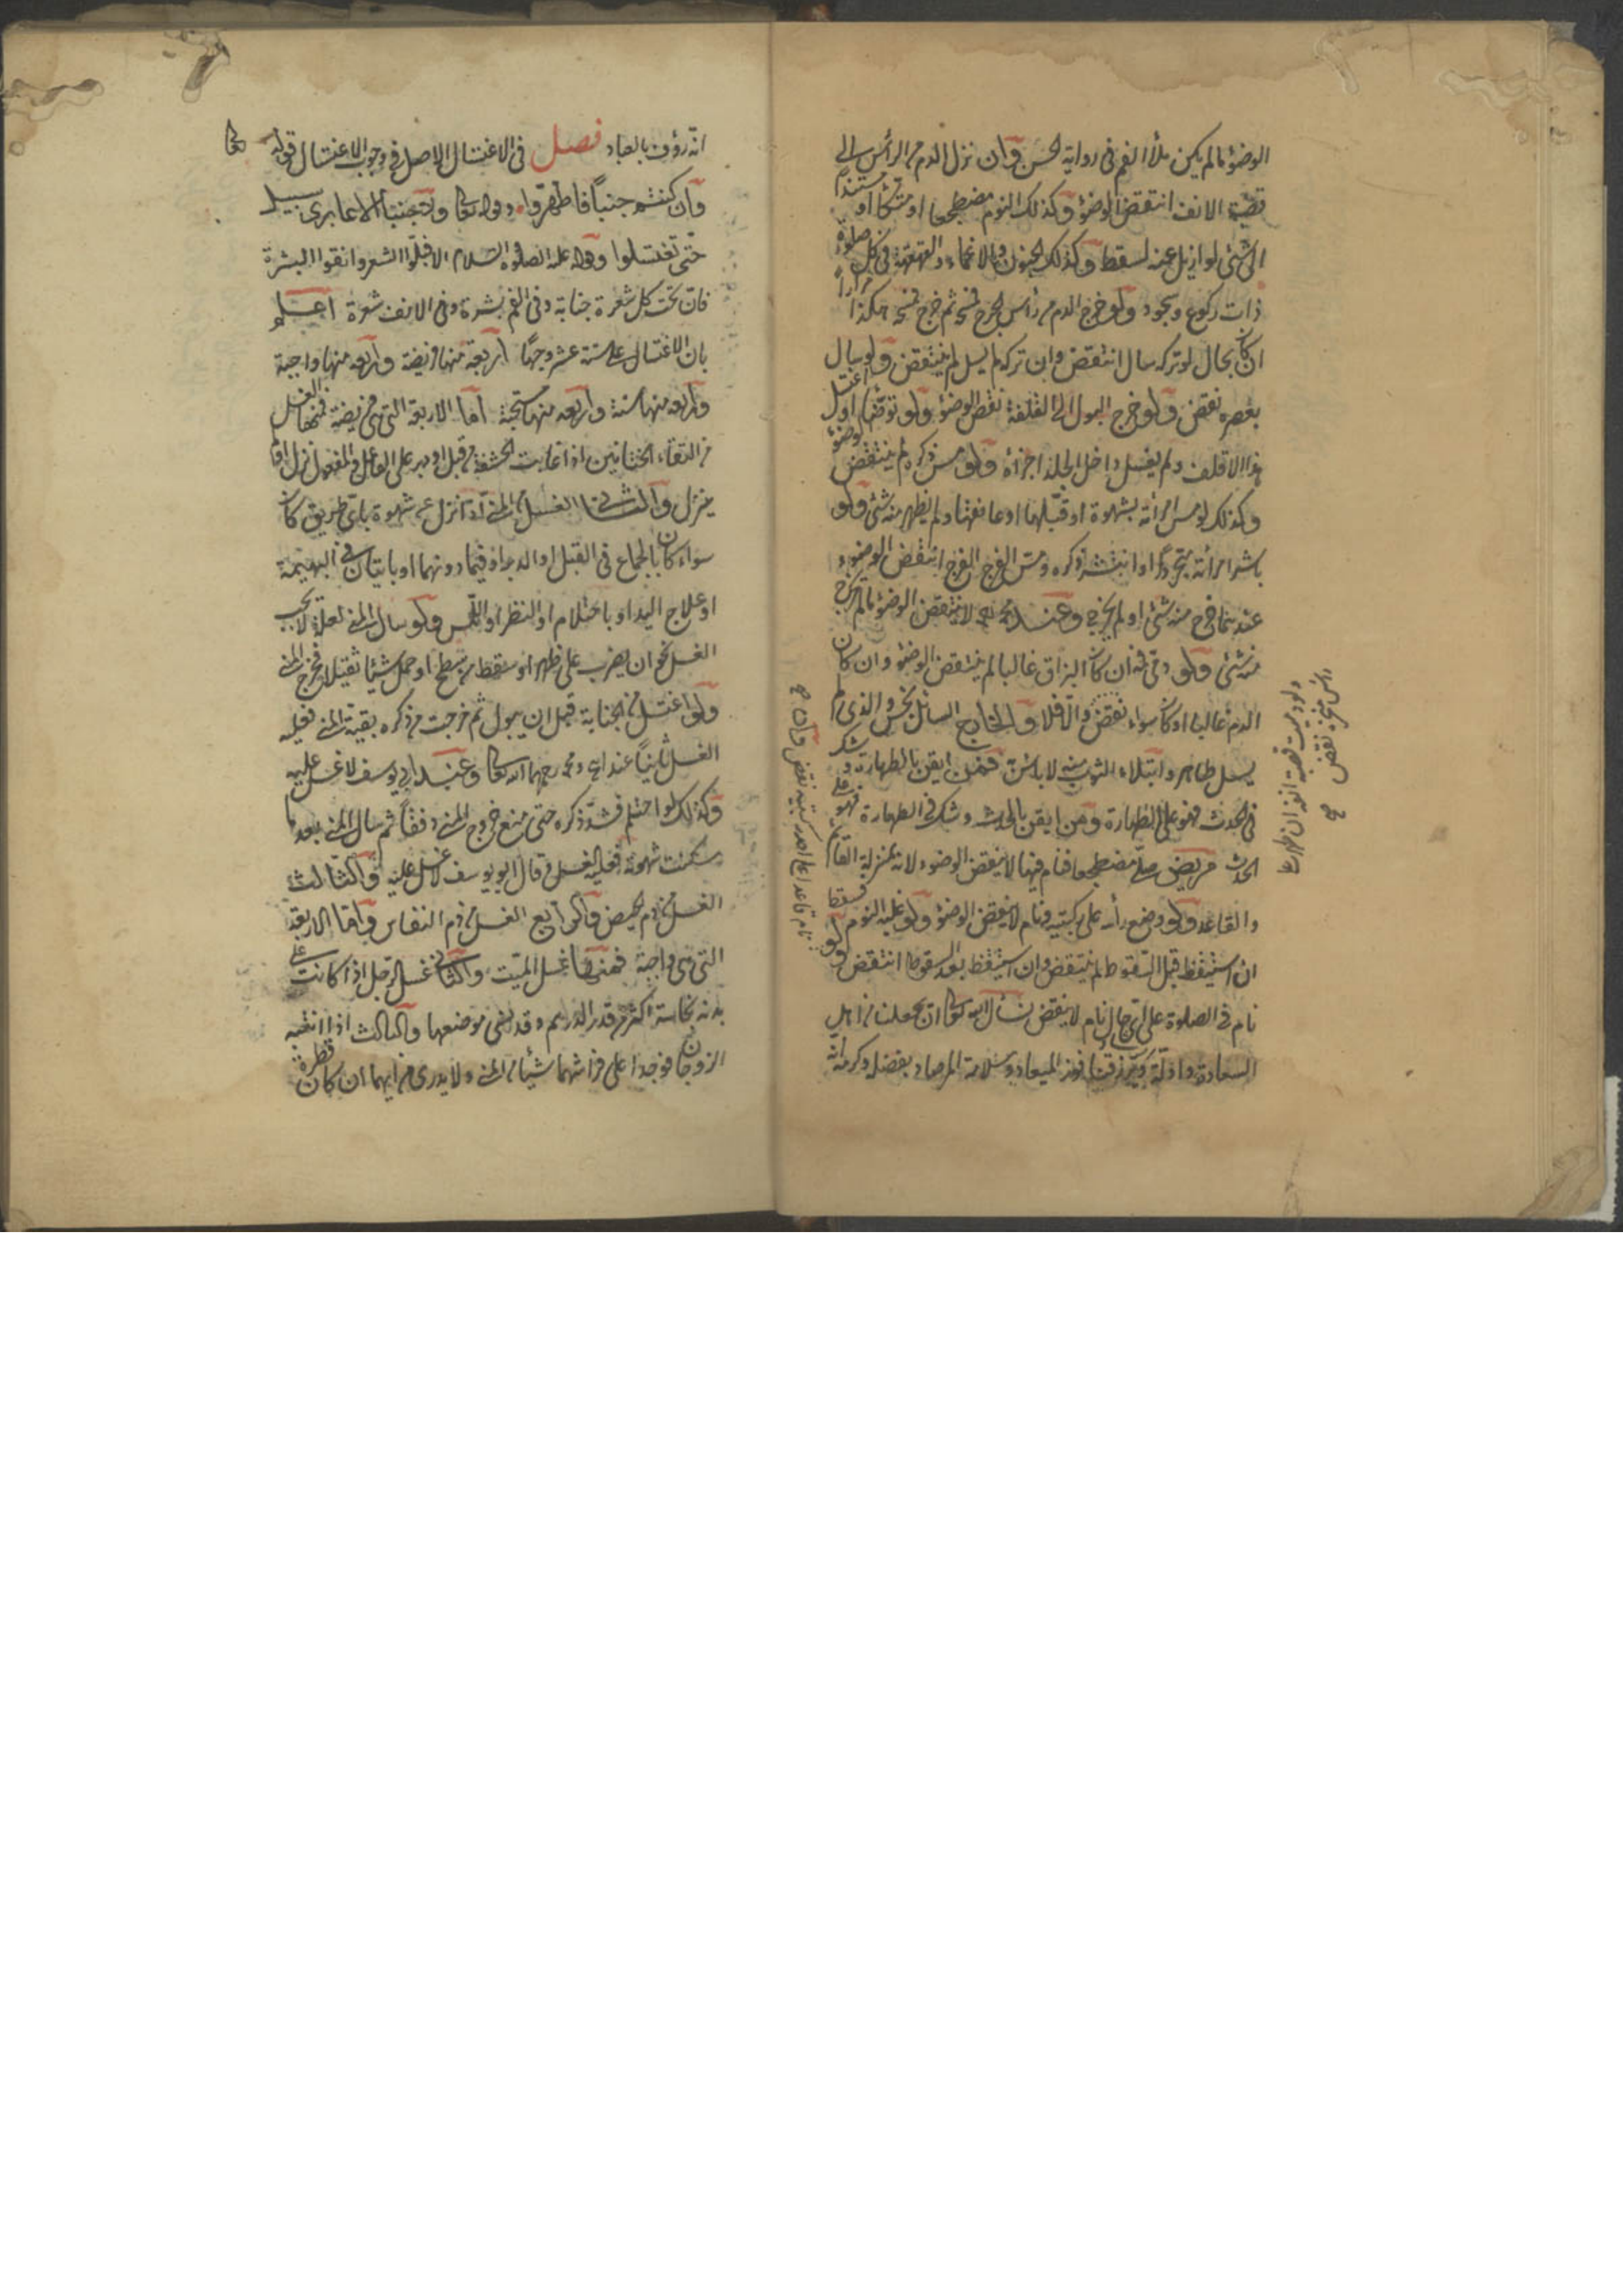 الوضؤ مالم يكن ملأ الفم فى رواية الحسن وان نزل الدم من الرأس الى
قصبة الانف انتقض الوضؤ وكذلك النوم مضطجعا او متكئا او مستندا
الى شئ لو ازيل عنه لسقط وكذلك الجنون والاغماء والقهقهة فى كل صلوة
ذات ركوع وسجود ولو خرج الدم من رأس الجرح فمسحه ثم خرج فمسحه هكذا مرارا
ان كان بحال لو تركه سال انتقض وان تركه لم يسل لم ينتقض ولو سال
بعصره نقض ولو خرج البول الى القلفة نقض الوضؤ ولو توضأ او اغتسل
هذا الاقلف ولم يغسل داخل الجلد اجزأه ولو مس ذكره لم ينتقض الوضؤ
وكذلك لو مس امرأته بشهوة او قبلها او عانقها ولم يظهر منه شئ ولو
باشر امرأته بتجرد او انتشر ذكره ومس الفرج الفرج انتقض الوضوء
عندهما خرج منه شئ او لم يخرج وعند محمد لا ينتقض الوضؤ مالم يخرج
منه شئ ولو فى فمه ان كان البزاق غالبا لم ينتقض الوضؤ وان كان
الدم غالبا او كان سواء نقض والا فلا والخارج السائل نجس والذى لم
يسل طاهر وابتلاء الثوب منه لا بأس به فمن ايقن بالطهارة وشك
فى الحدث فهو على الطهارة ومن ايقن بالحدث وشك فى الطهارة فهو على
الحدث مريض صلى مضطجعا فنام فيها لا ينقض الوضوء لانه بمنزلة القائم
والقاعد ولو وضع رأسه على ركبتيه ونام لا ينقض الوضؤ ولو غلبه النوم فسقط
ان استيقظ قبل السقوط لم ينتقض وان استيقظ بعد السقوط انتقض ولو
نام فى الصلوة على اى حال نام لا ينقض نسأل الله تعالى ان يجعلنا من اهل
السعادة ويرزقنا فوز الميعاد وسلامة المرصاد بفضله وكرمه انه
رأس نقض
نام قاعدا
انه رؤف بالعباد فصل فى الاغتسال الاصل فى وجوب الاغتسال قوله تعالى
وان كنتم جنبا فاطهروا وقوله تعالى ولا جنبا الا عابرى سبيل
حتى تغتسلوا وقوله عليه الصلوة والسلام الا فبلوا الشعر وانقوا البشرة
فان تحت كل شعرة جنابة وفى الفم بشرة وفى الانف شعرة اعلم
بان الاغتسال على ستة عشر وجها اربعة منها فريضة واربعة منها واجبة
واربعة منها سنة واربعة منها مستحبة اما الاربعة التى هى فريضة فمنها الغسل
من التقاء الختانين اذا غابت الحشفة من قبل او دبر على الفاعل والمفعول انزل او لم
ينزل والثانى الغسل من المنى اذا نزل عن شهوة باى طريق كان
سواء كان بالجماع فى القبل او الدبر او فيما دونهما او باتيان فى البهيمة
او علاج اليد او باحتلام او النظر او اللمس ولو سال المنى لعلة لا يجب
الغسل نحو ان يضرب على ظهره او سقط من سطح او حمل شيئا ثقيلا فخرج المنى
ولو اغتسل من الجنابة قبل ان يبول ثم خرجت من ذكره بقية المنى فعليه
الغسل ثانيا عند ابى ح ومحمد رحمهما الله تعالى وعند ابى يوسف لا غسل عليه
وكذلك لو احتلم فشد ذكره حتى منع خروج المنى دفقا ثم سال المنى بعد ما
سكنت شهوته فعليه الغسل وقال ابو يوسف لا غسل عليه والثالث
الغسل من دم الحيض والرابع الغسل من دم النفاس واما الاربعة
التى هى واجبة فمنها غسل الميت والثانى غسل الرجل اذا كانت على
بدنه نجاسة اكثر من قدر الدرهم وقد نسى موضعها والثالث اذا انتبه
الزوجان فوجدا على فراشهما شيئا من المنى ولا يدرى من ايهما ان كان قطرة